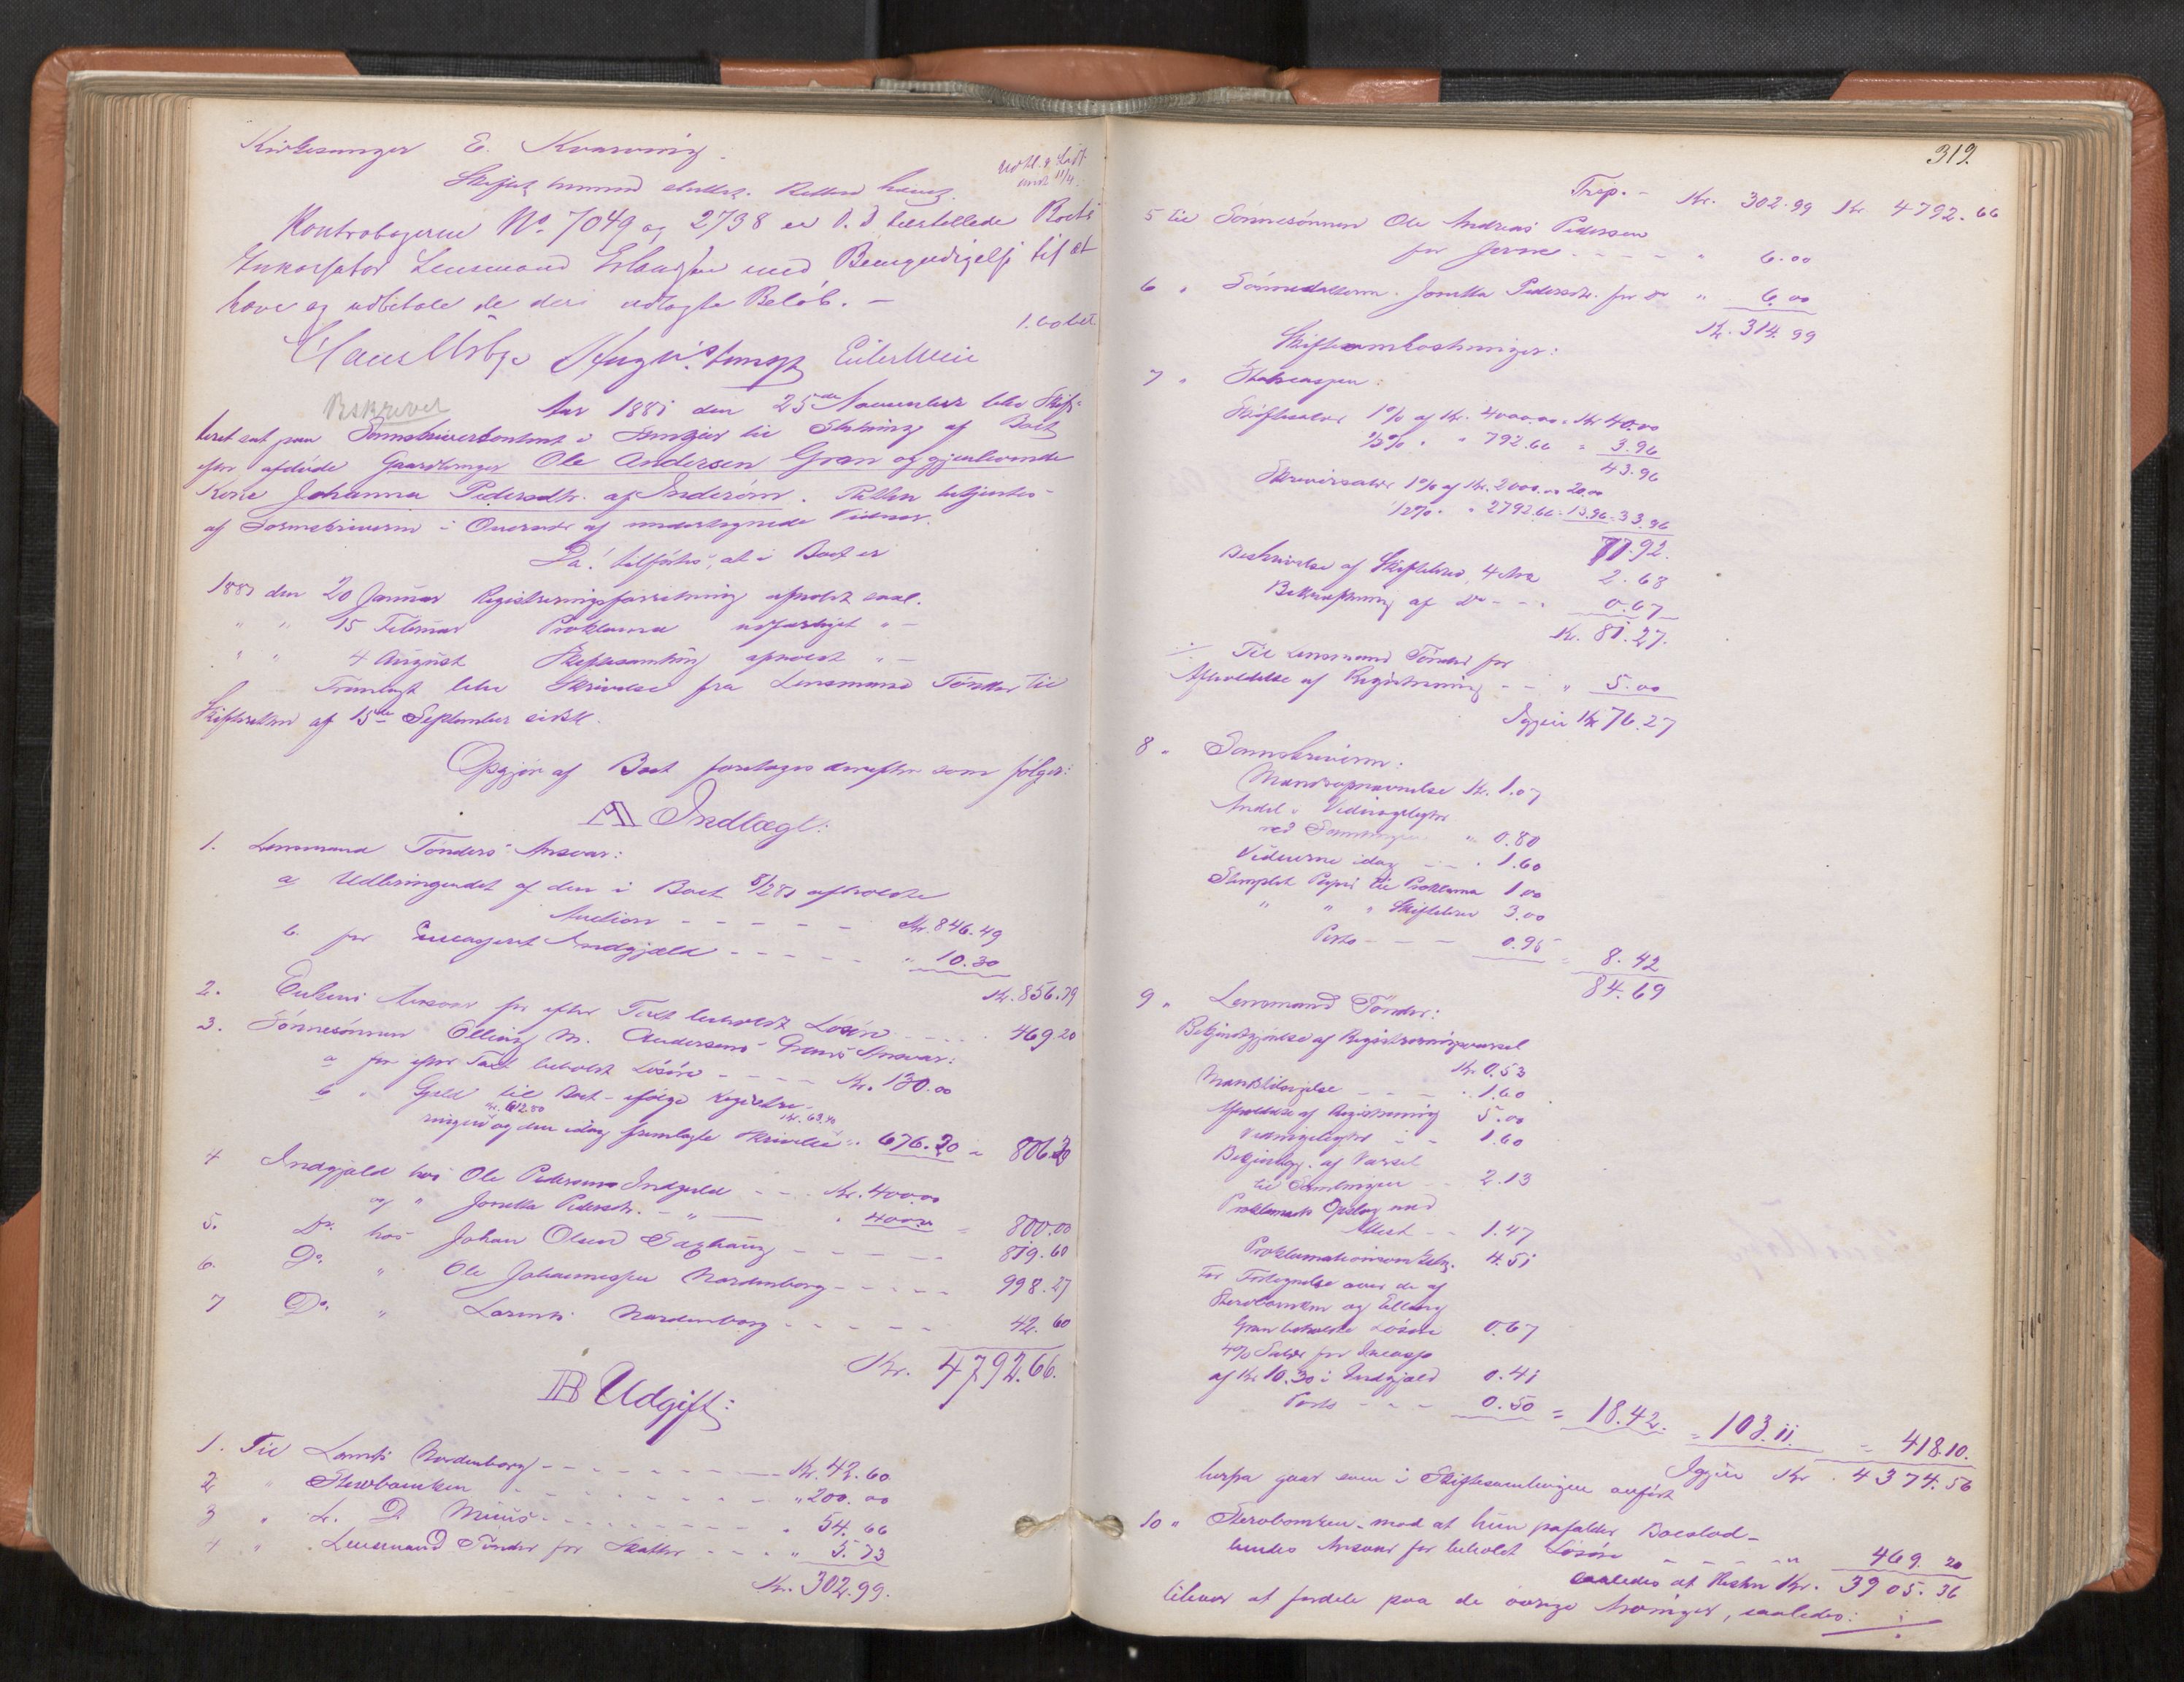 Kirkesanger E. Kvarving.
Skiftet hermed sluttet. Retten hævet.
Kontrabøgerne No. 7049 og 2738 er D. D. tilstillede Boets
Inkassator Lensmand Erlandsen med Bemyndigelse til at
hæve og udbetale de deri udlagte Beløb. –
1.60 bet.
Beskrevet
Aar 1881 den 25de November blev Skifte-
ret sat paa Sorenskriverkontoret i til Slutning af Boet
efter afdøde Gaardbruger Ole Andersen Gran og gjenlevende
Kone Johanna Pedersdtr. af Inderøen. Retten betjentes
af Sorenskriveren i Overvær af undertegnede Vidner.
Da tilførtes, at i Boet er
1881 den 20 Januar Registreringsforretning afholdt saal.
" " 15 Februar Proklama udfærdiget " –
" " 4 August Skiftesamling afholdt " –
Fremlagt blev Skrivelse fra Lensmand Tønder til
Skifteretten af 15de September sidstl.
Opgjør af Boet foretages derefter som følger:
A Indtægt:
1. Lensmand Tønders Ansvar:
a Udbringendet af den i Boet afholdte
Auction – – – – – Kr. 846.49
b. for Incasseret Indgjæld – – – – – " 10.30
Kr. 856.79
2. Enkens Ansvar for efter Taxt beholdt Løsøre – – – – 469.20
3. Sønnesønnen Elling M. Andersens Grans Ansvar:
a for efter Taxt beholdt Løsøre – – – – Kr. 130.00
b " Gjæld til Boet – ifølge Registre-
Kr. 612.80 Kr. 63.40
ringen og den idag fremlagte Skrivelse " 676.20 = 806.20
4 Indgjæld hos Ole Pedersens Indgjeld – – Kr. 400.00
og " Jonetta Pedersdtr. – " – " 400.00 = 800.00
5. Do. hos Johan Olsen – – – – – 819.60
6. Do. " Ole Johannessen Nordenborg – – – – – 998.27
7 Do. " Lorents Nordenborg – – – – – 42.60
Kr. 4792.66.
B Udgift:
1. Til Lorents Nordenborg – – – – – – – Kr. 42.60
2 " Stervboenken – – – – – – – " 200.00
3 " L. D. – – – – – – – " 54.66
4 " Lensmand Tønder for Skatter – – – " 5.73
Kr. 302.99.
319.
Trsp. – Kr. 302.99 Kr 4792.66
5 til Sønnesønnen Ole Andreas Pedersen
for – – – – " 6.00
6 " Sønnedatteren Jonetta Pedersdtr. for Do " 6.00
Kr. 314.99
Skifteomkostninger:
7 " Statscassen:
Skiftesalær 1% af Kr. 4000.00 = Kr 40.00
½% " " 792.66 = 3.96
43.96
Skriversalær 1% af Kr. 2000.00 20.00
½% " " 2792.66 = 13.96 = 33.96
77.92.
Beskrivelse af Skiftebrev, 4 Ark 2.68
Bekræftning af Do – – – 0.67
Kr. 81.27.
÷ Til Lensmand Tønder for
Afholdelse af Registrering – – " 5.00
Igjen Kr 76.27
8 " Sorenskriveren:
Mandsopnævnelse Kr. 1.07
Andel i Vidnegebyr
ved Samlingen " 0.80
Vidnerne idag – – " 1.60
Stemplet Papir til Proklama 1.00
" " " Skiftebrev 3.00
Porto – – – 0.95 = 8.42
84.69
9 " Lensmand Tønder:
Bekjendtgjørelse af Registreringsvarsel
Kr. 0.53
Mandstilsigelse – – – " 1.60
Afholdelse af Registrering 5.00
Vidnegebyr – – 1.60
Bekjendtgj. af Varsel
til Samlingen – – 2.13
Proklamats Opslag med
Attest – – 1.47
Proklamationsomk. 4.51
For Fortegnelse over de af
Stervboenken og Elling
Gran beholdte Løsøre 0.67
4% Salær for Incasso
af Kr 10.30 i Indgjæld 0.41
Porto – – – 0.50 = 18.42. = 103.11. = 418.10.
Igjen Kr. 4374.56
herpaa gaar som i Skiftesamlingen anført
10 " Stervboenken – mod at hun pafalder Boeslod –
hendes Ansvar for beholdt Løsøre – – – – – " 469.20
saaledes at Resten Kr. 3905.36
bliver at fordele paa de øvrige Arvinger, saaledes: